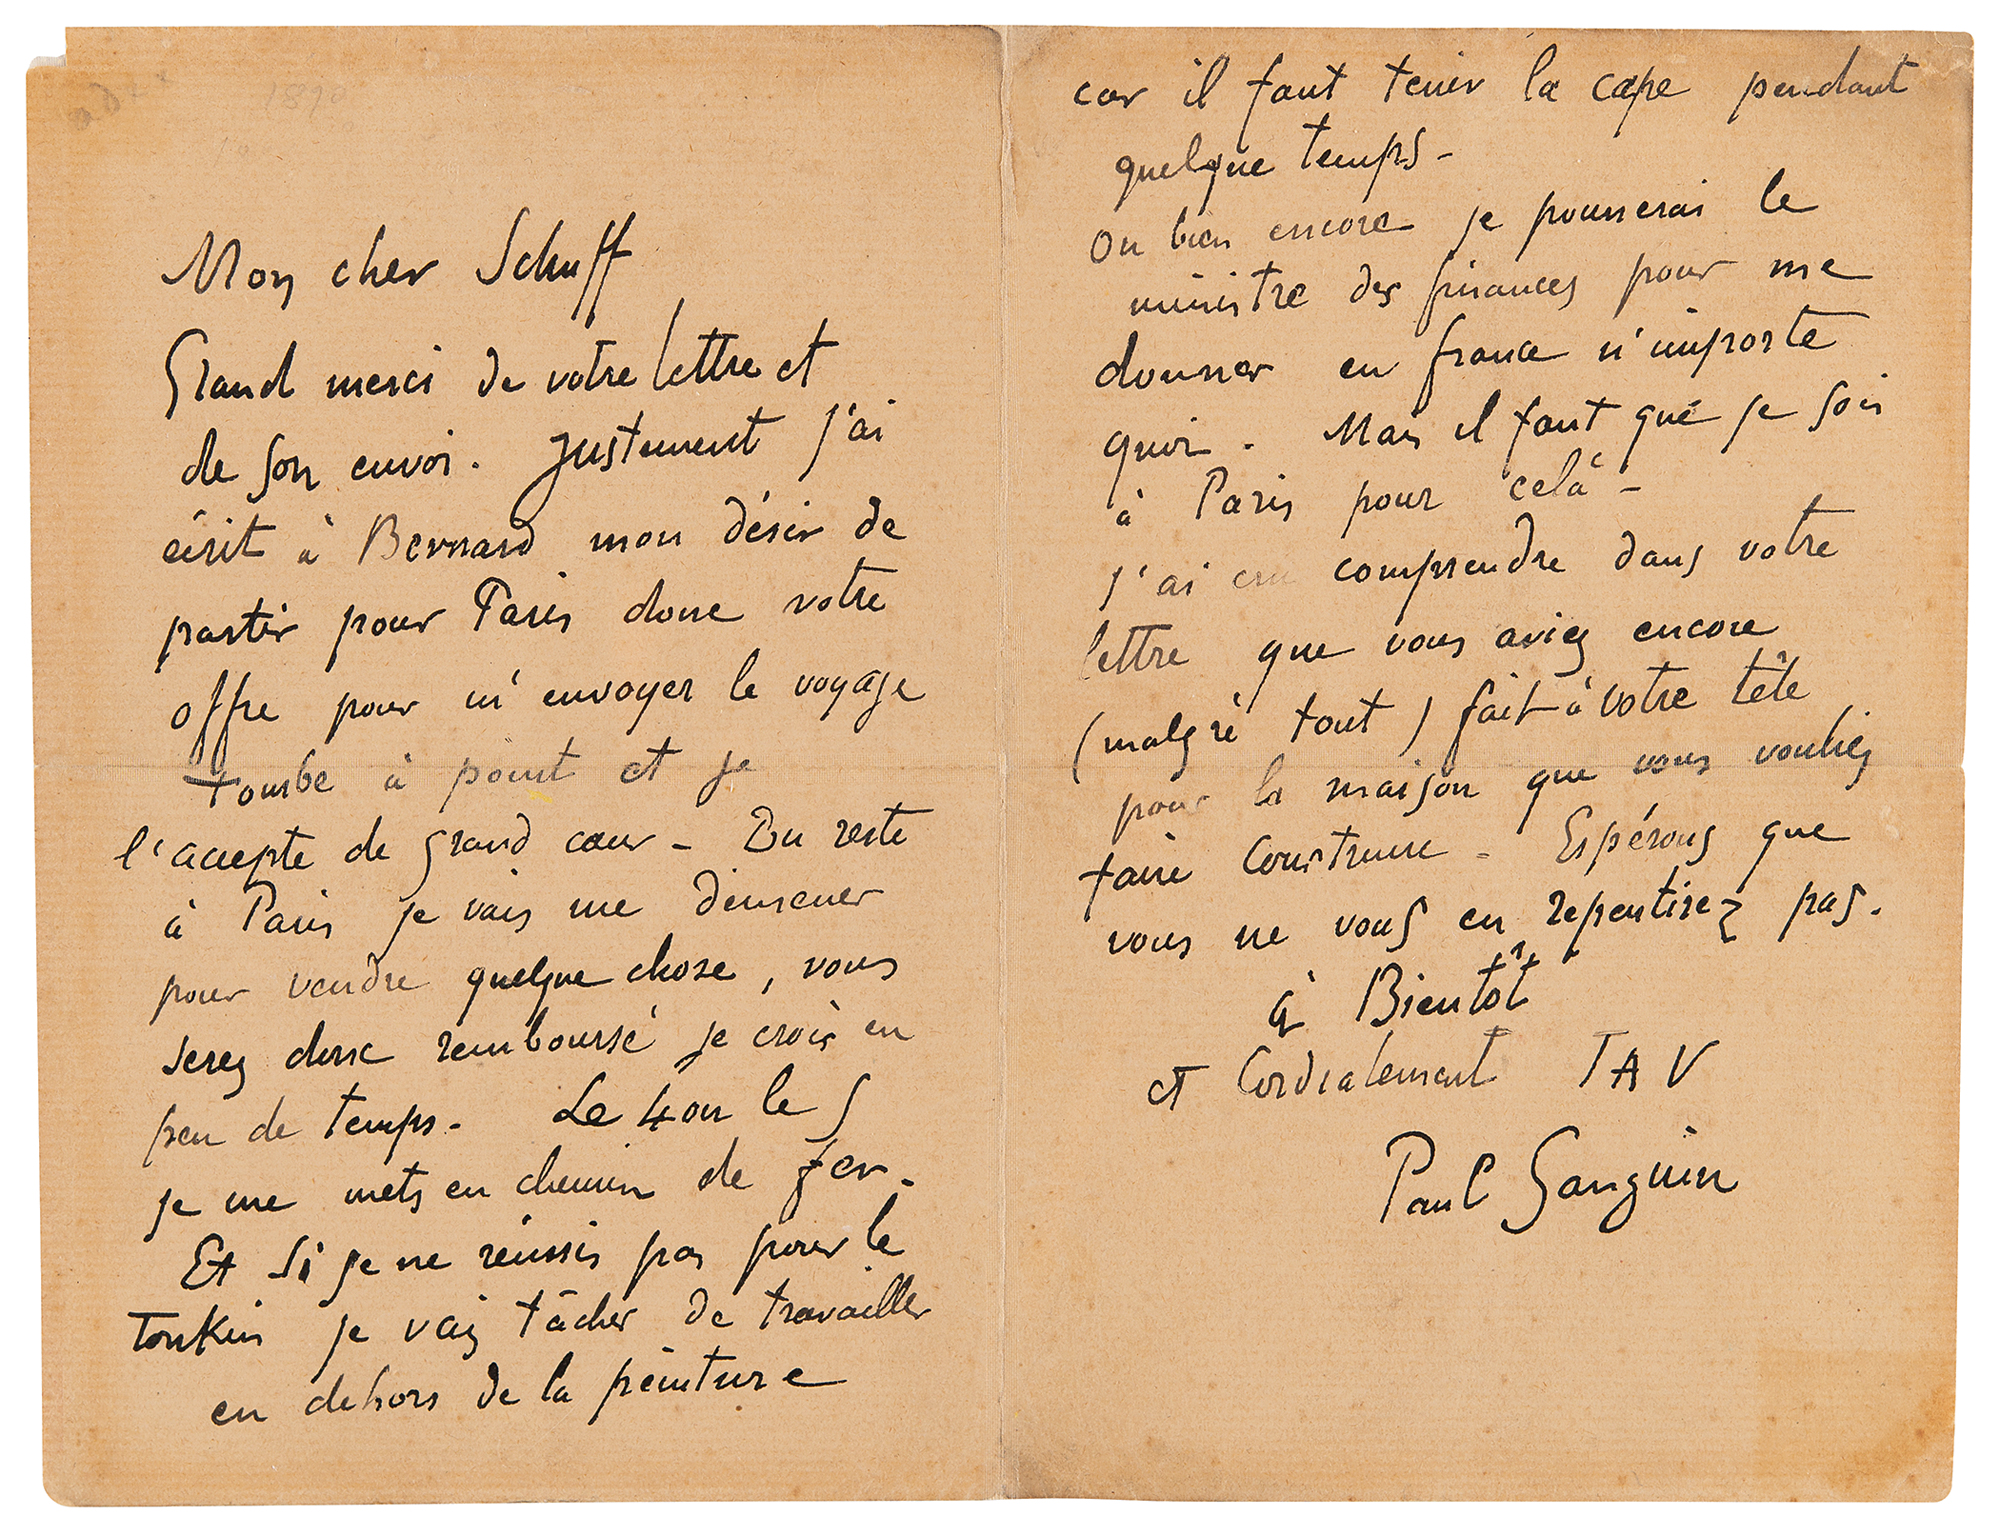 1890
Mon cher Schuff
Grand merci de votre lettre et
de son envoi. Justement j'ai
écrit à Bernard mon désir de
partir pour Paris donc votre
offre pour m'envoyer le voyage
tombe à point et je
l'accepte de grand cœur - Du reste
à Paris je vais me démener
pour vendre quelque chose, vous
serez donc remboursé je crois en
peu de temps. Le 4 ou le 5
je me mets en chemin de fer.
Et si je ne réussis pas pour le
Tonkin je vais tâcher de travailler
en dehors de la peinture
car il faut tenir la cape pendant
quelque temps -
Ou bien encore je pousserai le
ministre des finances pour me
donner en france n'importe
quoi. Mais il faut que je sois
à Paris pour celà -
J'ai cru comprendre dans votre
lettre que vous aviez encore
(malgré tout) fait à votre tête
pour la maison que vous vouliez
faire construire - Espérons que
vous ne vous en repentirez pas.
à Bientôt
et Cordialement TAV
Paul Gauguin